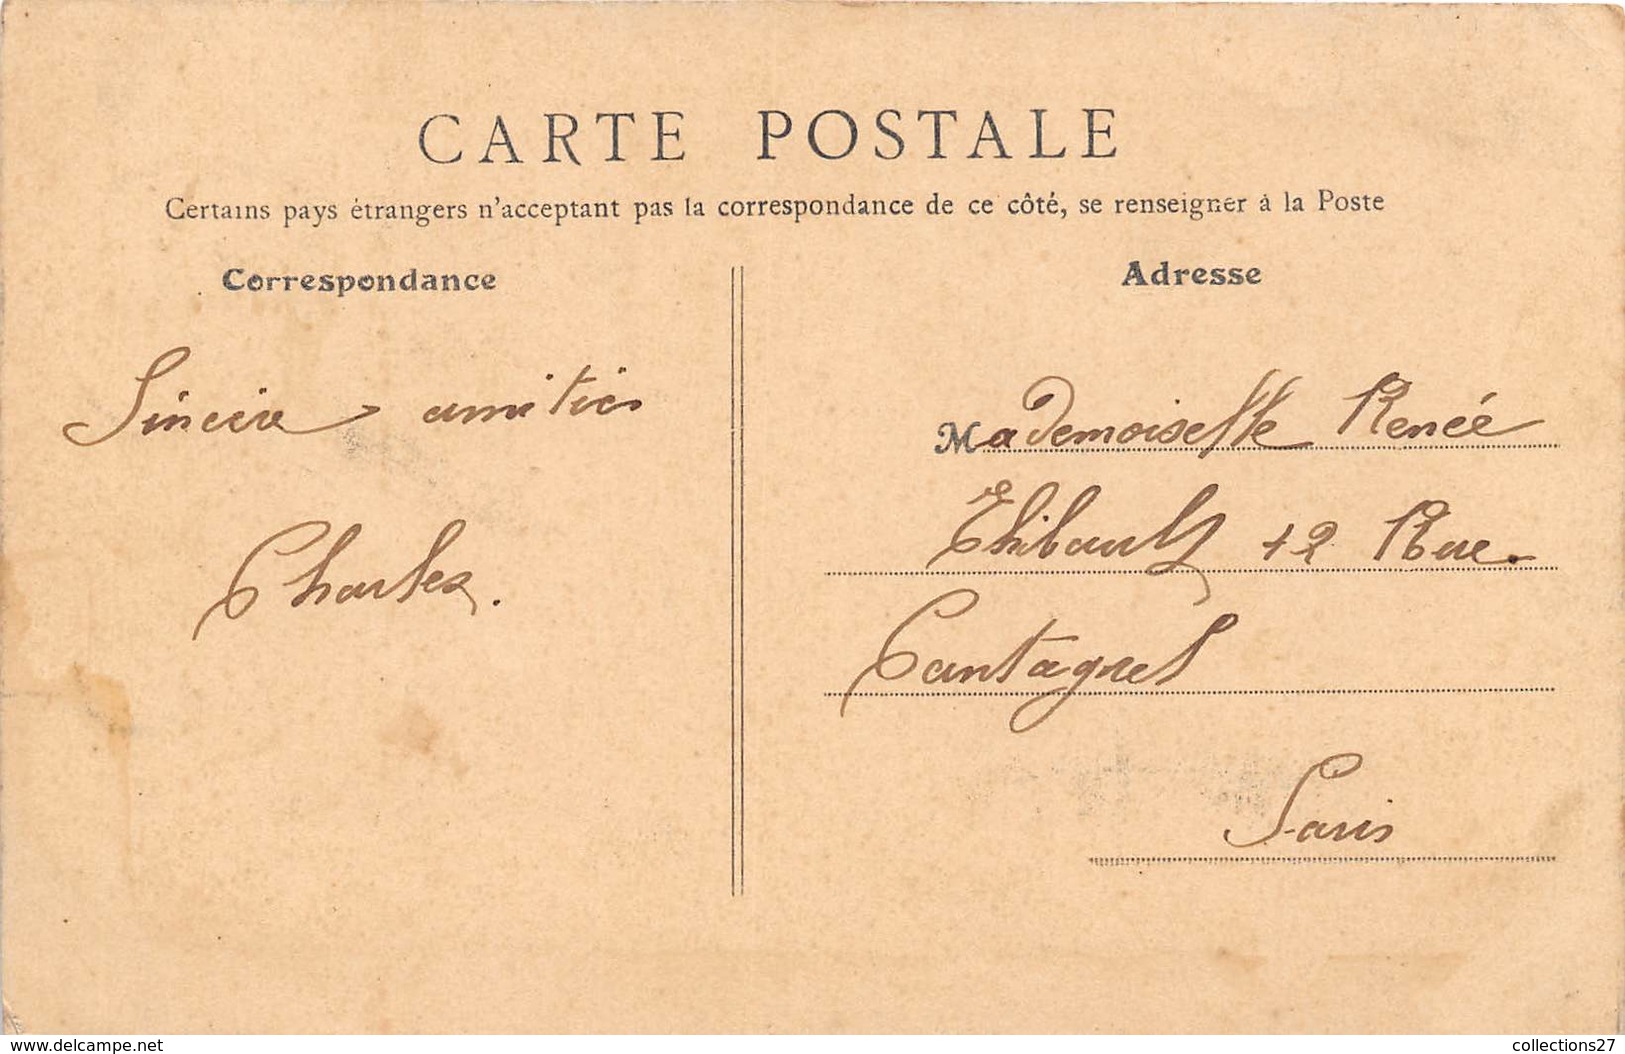 CARTE POSTALE
Certains pays étrangers n'acceptent pas la correspondance de ce côté, se renseigner à la Poste
Correspondance
Sincère amitiés
Charles.
Adresse
Mademoiselle Renée
Thibault 12 Rue.
Cantagrel
Paris
www.delcampe.net
collections27